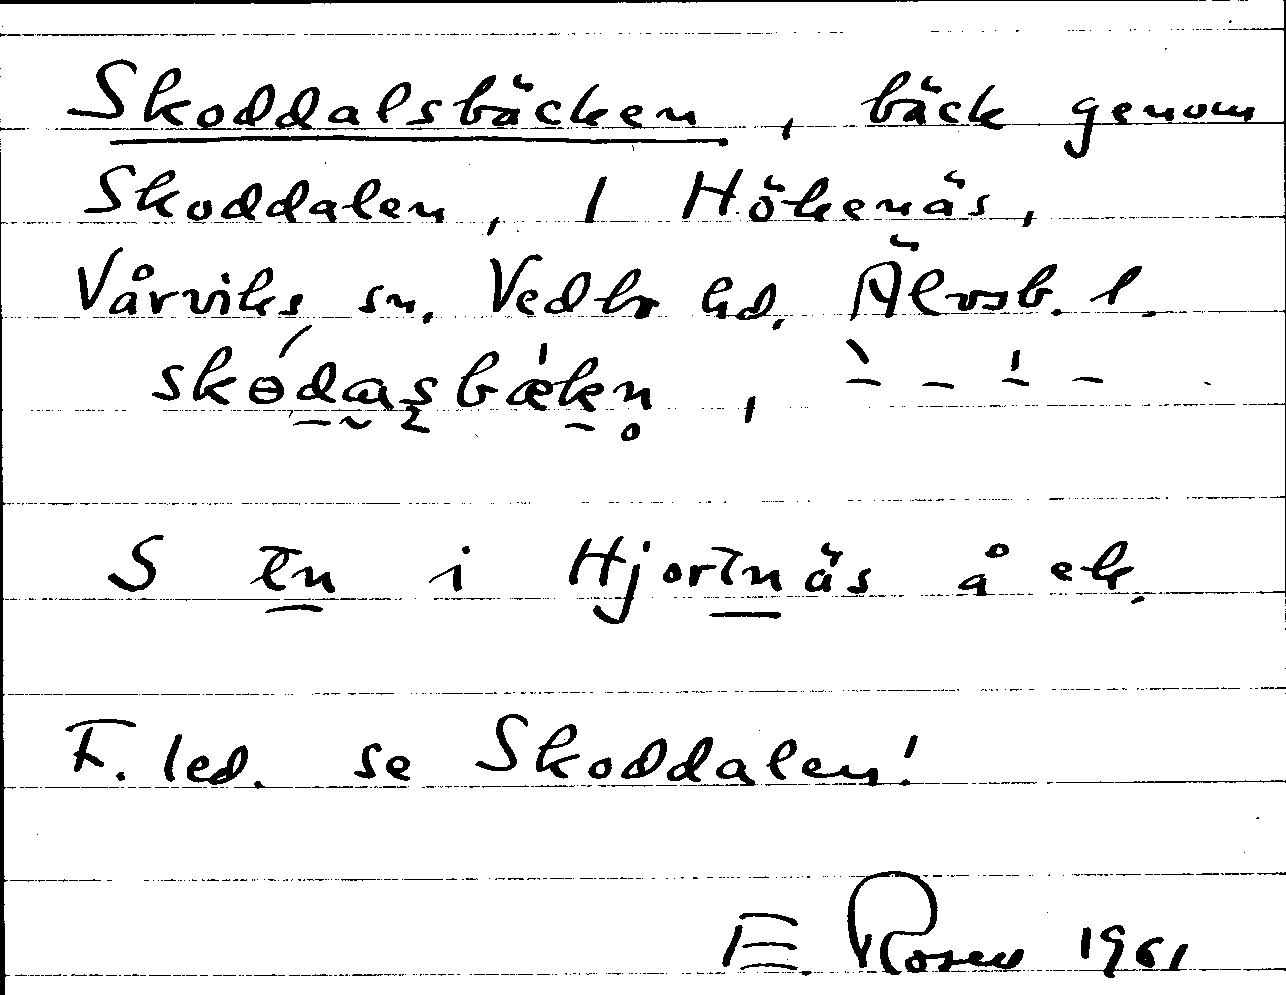 Skoddalsbäcken, bäck genom
Skoddalen, 1 Hökenäs,
Vårviks sn, Vedbo hd, Älvsb. l.
skɵ́da̰ʂbækn̥, ` – ' –
S En i Hjortnäs å ek.
F. led. se Skoddalen!
E. Rosen 1961